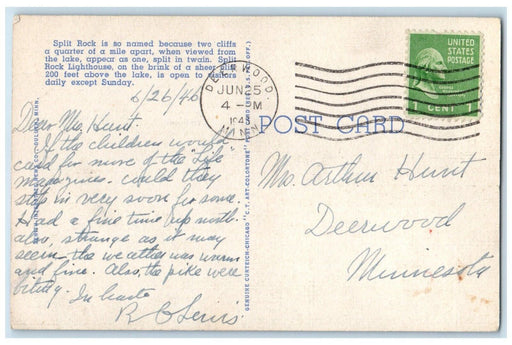 Split Rock is so named because two cliffs
a quarter of a mile apart, when viewed from
the lake, appear as one, split in twain. Split
Rock Lighthouse, on the brink of a sheer cliff
200 feet above the lake, is open to visitors
daily except Sunday.
6/26/46
Dear Mrs. Hunt:
If the children would
care for more of the "Life
magazines. could they
stop in very soon for some.
Had a fine time up north.
also, strange as it may
seem the weather was warm
and fine. Also, the pike were
biting. In haste
R C Lewis
GENUINE CURTEICH-CHICAGO "C.T. ART-COLORTONE" POST CARD (REG. U.S. PAT. OFF.)
DEERWOOD,
JUN 25
4 PM
MINN.
UNITED
STATES
POSTAGE
1 CENT 1
POST CARD
Mrs. Arthur Hunt
Deerwood
Minnesota